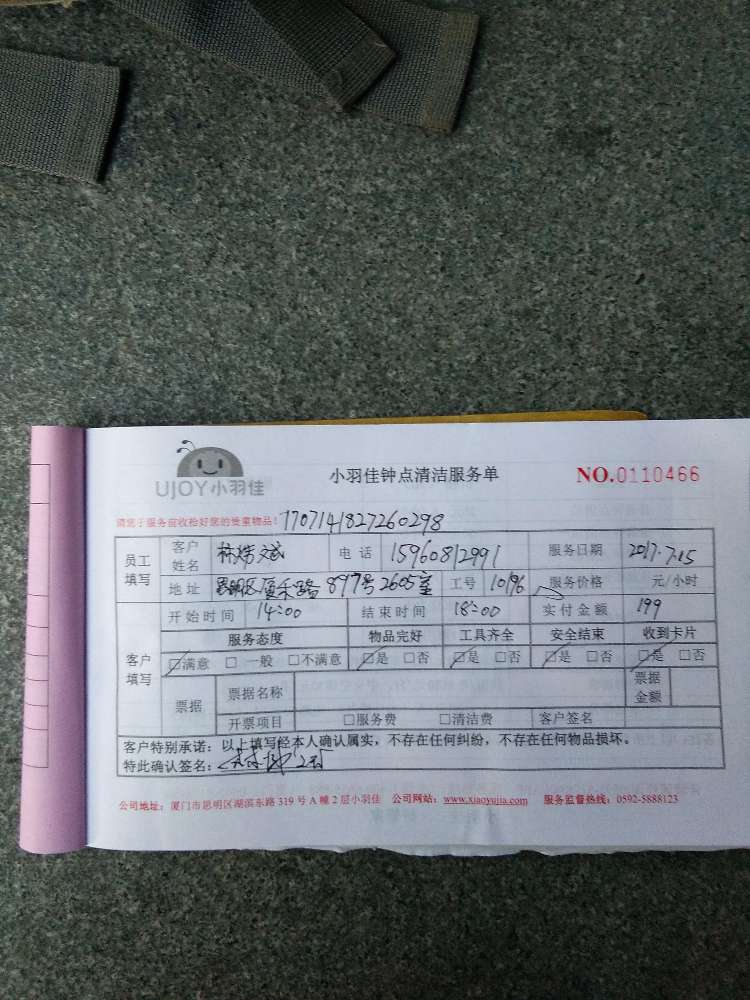 UJOY小羽佳
小羽佳钟点清洁服务单
NO.0110466
请您于服务前收拾好您的贵重物品! 1707141827260298
员工填写 客户姓名 林炜斌 电话 15960812991 服务日期 2017.7.15
地址 思明区厦禾路897号2605室 工号 10196 服务价格 元/小时
客户填写 开始时间 14:00 结束时间 18:00 实付金额 199
服务态度 物品完好 工具齐全 安全结束 收到卡片
□满意 □一般 □不满意 □是 □否 □是 □否 □是 □否 □是 □否
票据 票据名称 票据金额
开票项目 □服务费 □清洁费 客户签名
客户特别承诺：以上填写经本人确认属实，不存在任何纠纷，不存在任何物品损坏。
特此确认签名：
公司地址：厦门市思明区湖滨东路 319 号 A 幢 2 层小羽佳 公司网站：www.xiaoyujia.com 服务监督热线：0592-5888123